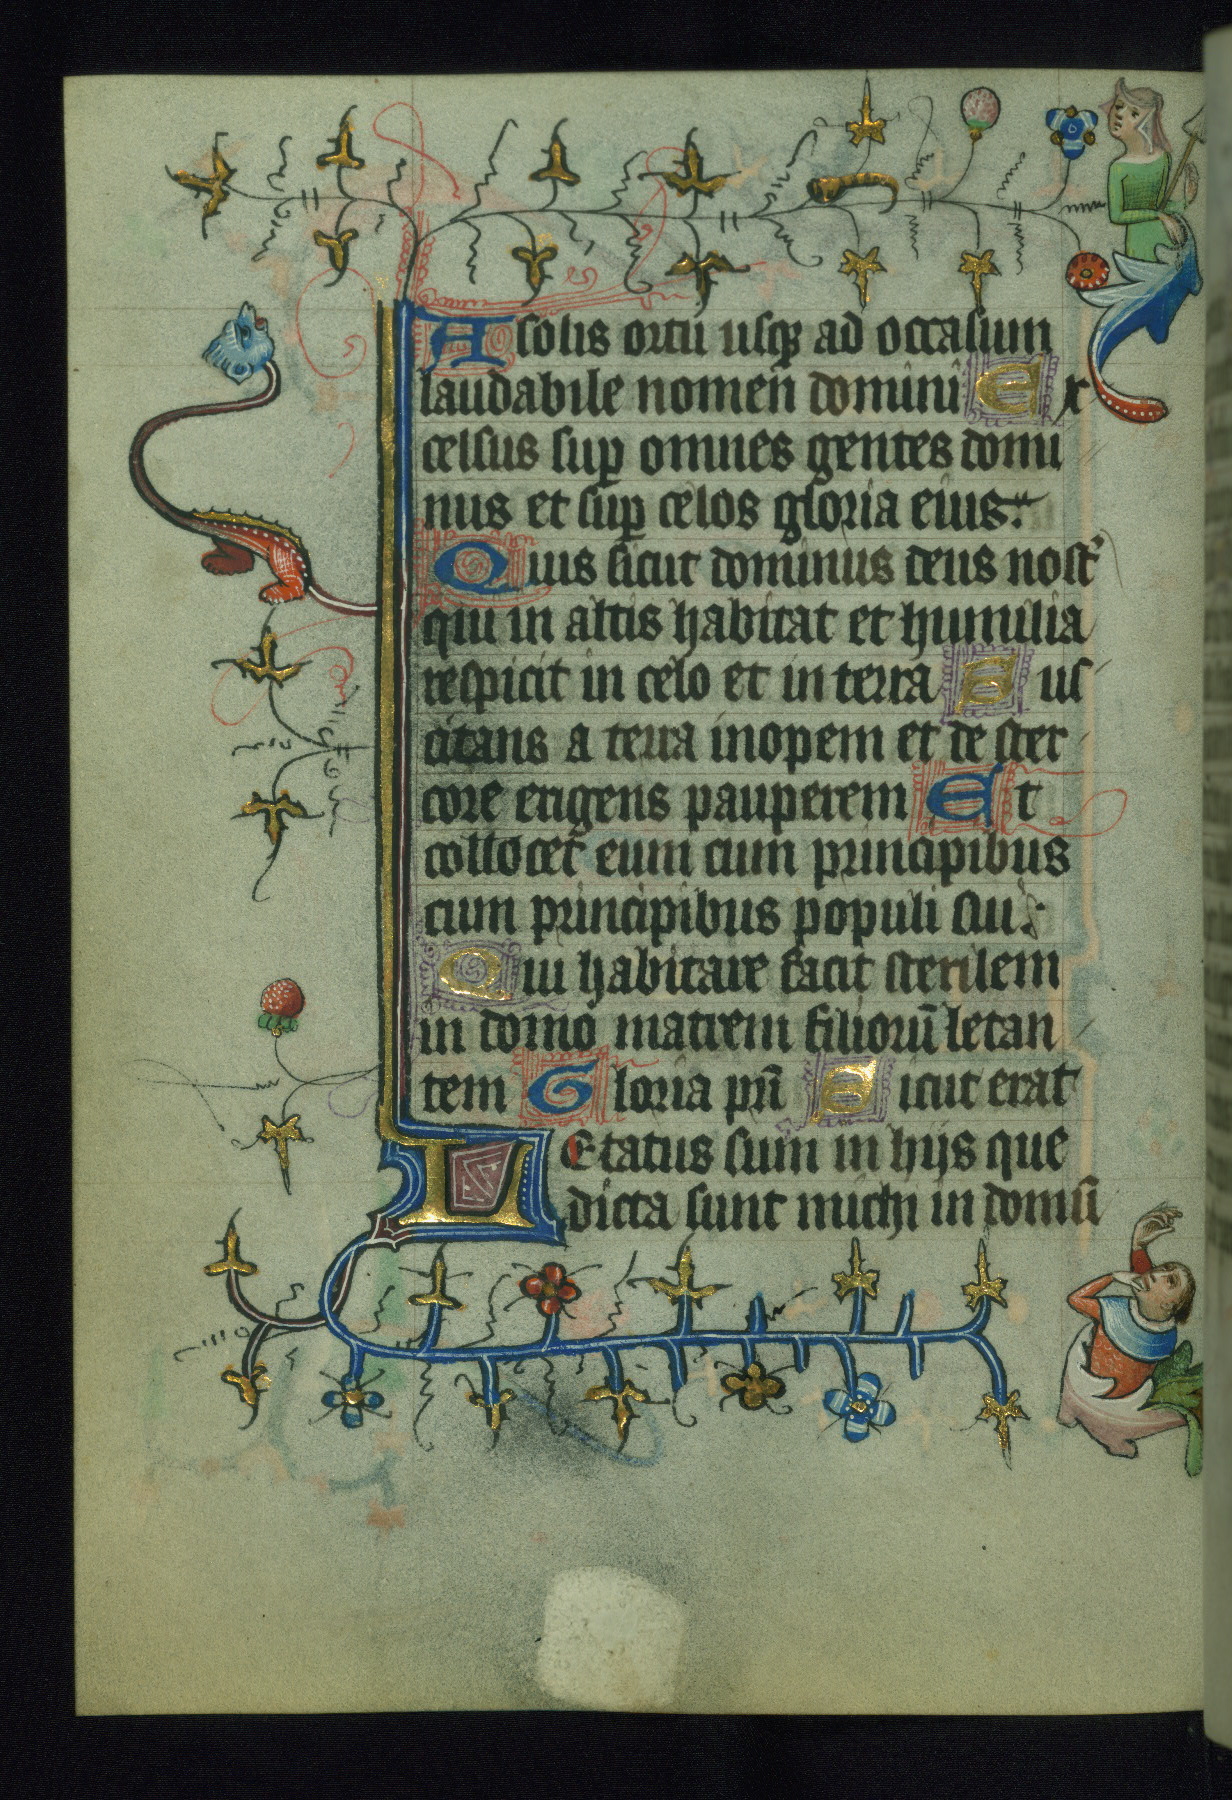 A solis ortu usqꝫ ad occasum
laudabile nomen domini Ex
celsus suꝑ omnes gentes domi
nus et suꝑ celos gloria eius.
Quis sicut dominus deus nost᷑
qui in altis habitat et humilia
respicit in celo et in terra Sus
citans a terra inopem et de ster
core erigens pauperem Et
collocet eum cum principibus
cum principibus populi sui.
Qui habitare facit sterilem
in domo matrem filiorū letan
tem Gloria pr̄i Sicut erat
Letatus sum in hijs que
dicta sunt michi in domū